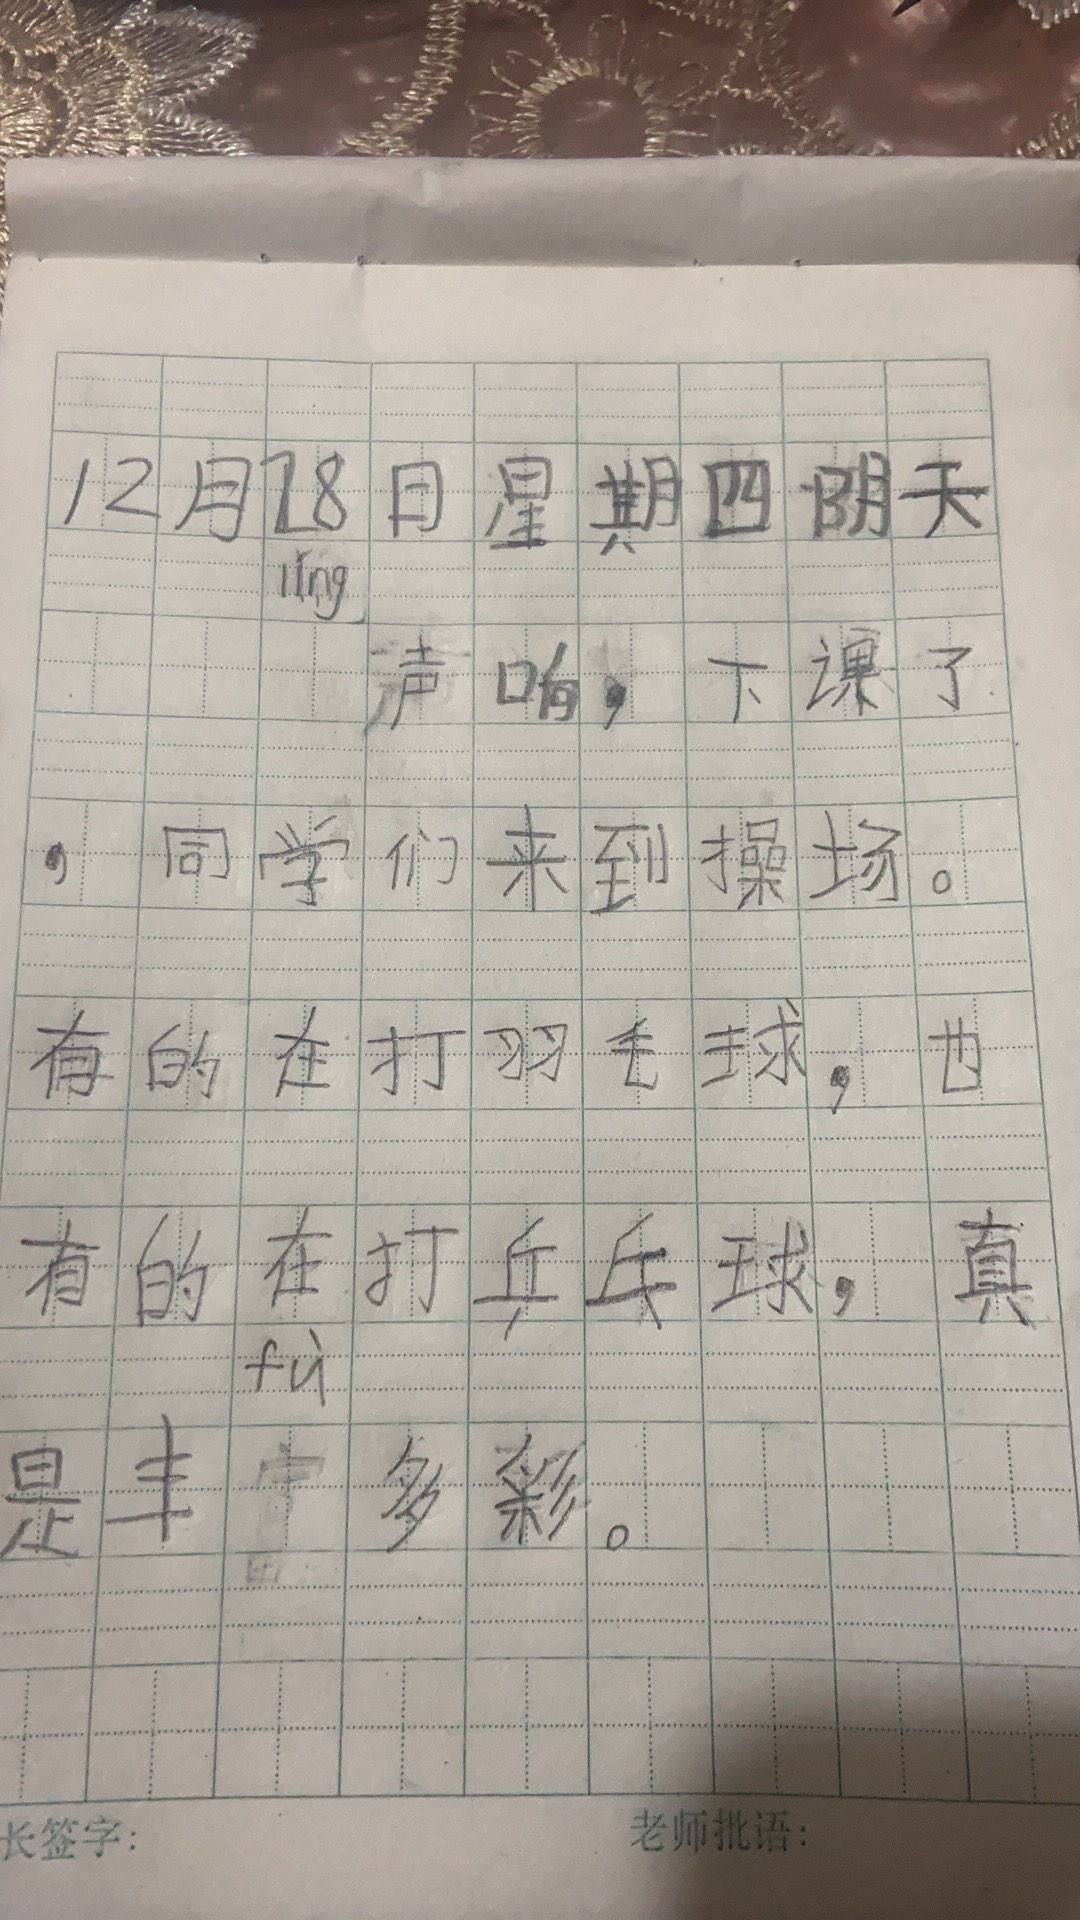 12月28日星期四阴天
líng
声响，下课了
，同学们来到操场。
有的在打羽毛球，也
有的在打乒乓球，真
fù
是丰多彩。
长签字： 老师批语：